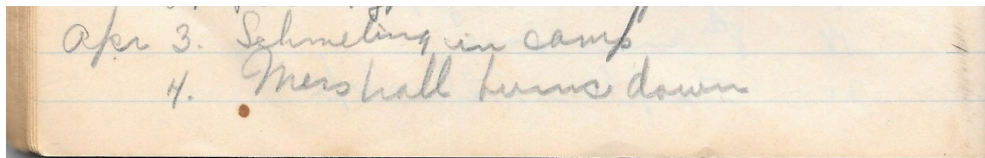 Apr 3. Schmeling in camp
4. Mershall burns down